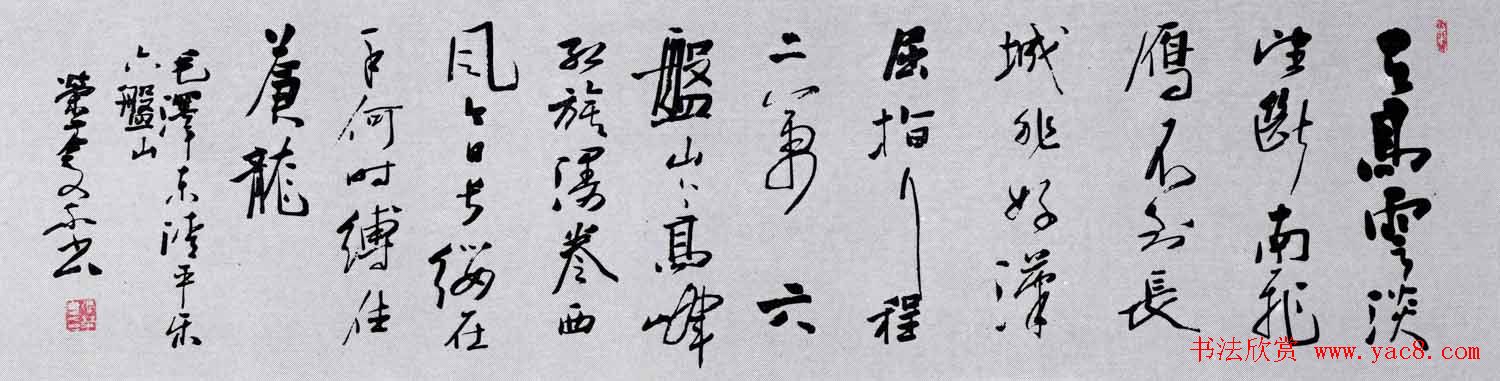 天高雲淡
望斷南飛
雁不到長
城非好漢
屈指行程
二萬六
盤山上高峰
红旗漫卷西
风今日长缨在
手何时縛住
蒼龍
毛澤東清平乐
六盤山
书
书法欣赏 www.yac8.com